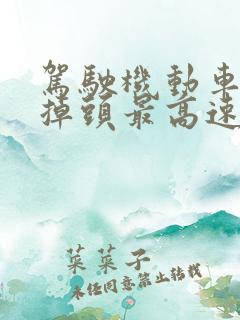 駕駛機動車
掉頭最高速
菜菜子
未經同意禁止轉載